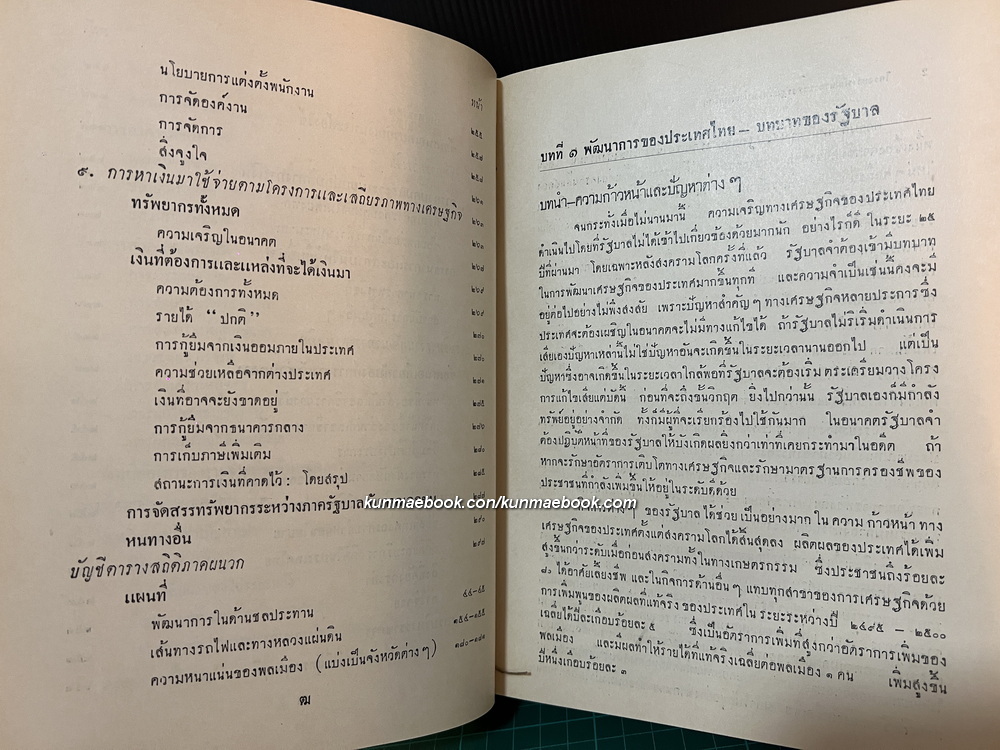 หน้า
นโยบายการแต่งตั้งพนักงาน ๒๕๕
การจัดองค์งาน
การจัดการ
สิ่งจูงใจ
๕. การหาเงินมาใช้จ่ายตามโครงการและเสถียรภาพทางเศรษฐกิจ
ทรัพยากรทั้งหมด
ความเจริญในอนาคต
เงินที่ต้องการและแหล่งที่จะได้เงินมา
ความต้องการทั้งหมด
รายได้ “ปกติ”
การกู้ยืมจากเงินออมภายในประเทศ
ความช่วยเหลือจากต่างประเทศ
เงินที่อาจจะยังขาดอยู่
การกู้ยืมจากธนาคารกลาง
การเก็บภาษีเพิ่มเติม
สถานะการเงินที่คาดไว้: โดยสรุป
การจัดสรรทรัพยากรระหว่างภาครัฐบาล
หนทางอื่น
บัญชีตารางสถิติภาคผนวก
แผนที่
พัฒนาการในด้านชลประทาน
เส้นทางรถไฟและทางหลวงแผ่นดิน
ความหนาแน่นของพลเมือง (แบ่งเป็นจังหวัดต่างๆ)
ฒ
บทที่ ๑ พัฒนาการของประเทศไทย – บทบาทของรัฐบาล
บทนำ–ความก้าวหน้าและปัญหาต่าง ๆ
จนกระทั่งเมื่อไม่นานมานี้ ความเจริญทางเศรษฐกิจของประเทศไทย
ดำเนินไปโดยที่รัฐบาลไม่ได้เข้าไปเกี่ยวข้องด้วยมากนัก อย่างไรก็ดี ในระยะ ๒๕
ปีที่ผ่านมา โดยเฉพาะหลังสงครามโลกครั้งที่แล้ว รัฐบาลจำต้องเข้ามีบทบาท
ในการพัฒนาเศรษฐกิจของประเทศมากขึ้นทุกที และความจำเป็นเช่นนี้คงจะมี
อยู่ต่อไปอย่างไม่พึงสงสัย เพราะปัญหาสำคัญๆ ทางเศรษฐกิจหลายประการซึ่ง
ประเทศจะต้องเผชิญในอนาคตจะไม่มีทางแก้ไขได้ ถ้ารัฐบาลไม่ริเริ่มดำเนินการ
เสียเองปัญหาเหล่านี้ไม่ใช่ปัญหาอันจะเกิดขึ้นในระยะเวลานานออกไป แต่เป็น
ปัญหาซึ่งอาจเกิดขึ้นในระยะเวลาใกล้พอที่รัฐบาลจะต้องเริ่มตระเตรียมวางโครง
การแก้ไขเสียแต่บัดนี้ ก่อนที่จะถึงขั้นวิกฤต ยิ่งไปกว่านั้น รัฐบาลเองก็มีกำลัง
ทรัพย์อยู่อย่างจำกัด ทั้งก็มีผู้ที่จะเรียกร้องไปใช้กันมาก ในอนาคตรัฐบาลจำ
ต้องปฏิบัติหน้าที่ของรัฐบาลให้บังเกิดผลยิ่งกว่าเท่าที่เคยกระทำมาในอดีต ถ้า
หากจะรักษาอัตราการเติบโตทางเศรษฐกิจและรักษามาตรฐานการครองชีพของ
ประชาชนที่กำลังเพิ่มขึ้นให้อยู่ในระดับดีด้วย
ต่างๆ ของรัฐบาล ได้ช่วยเป็นอย่างมาก ใน ความ ก้าวหน้า ทาง
เศรษฐกิจของประเทศตั้งแต่สงครามโลกได้สิ้นสุดลง ผลิตผลของประเทศได้เพิ่ม
สูงขึ้นกว่าระดับเมื่อก่อนสงครามทั้งในทางเกษตรกรรม ซึ่งประชาชนถึงร้อยละ
๘๐ ได้อาศัยเลี้ยงชีพ และในกิจการด้านอื่นๆ แทบทุกสาขาของการเศรษฐกิจด้วย
การเพิ่มพูนของผลิตผลที่แท้จริง ของประเทศใน ระยะระหว่างปี ๒๔๙๕ – ๒๕๐๐
เฉลี่ยได้ปีละเกือบร้อยละ ๕ ซึ่งเป็นอัตราการเพิ่มที่สูงกว่าอัตราการเพิ่มของ
พลเมือง และมีผลทำให้รายได้ที่แท้จริงเฉลี่ยต่อพลเมือง ๑ คน เพิ่มสูงขึ้น
ปีหนึ่งเกือบร้อยละ ๓
kunmaebook.com/kunmaebook.com